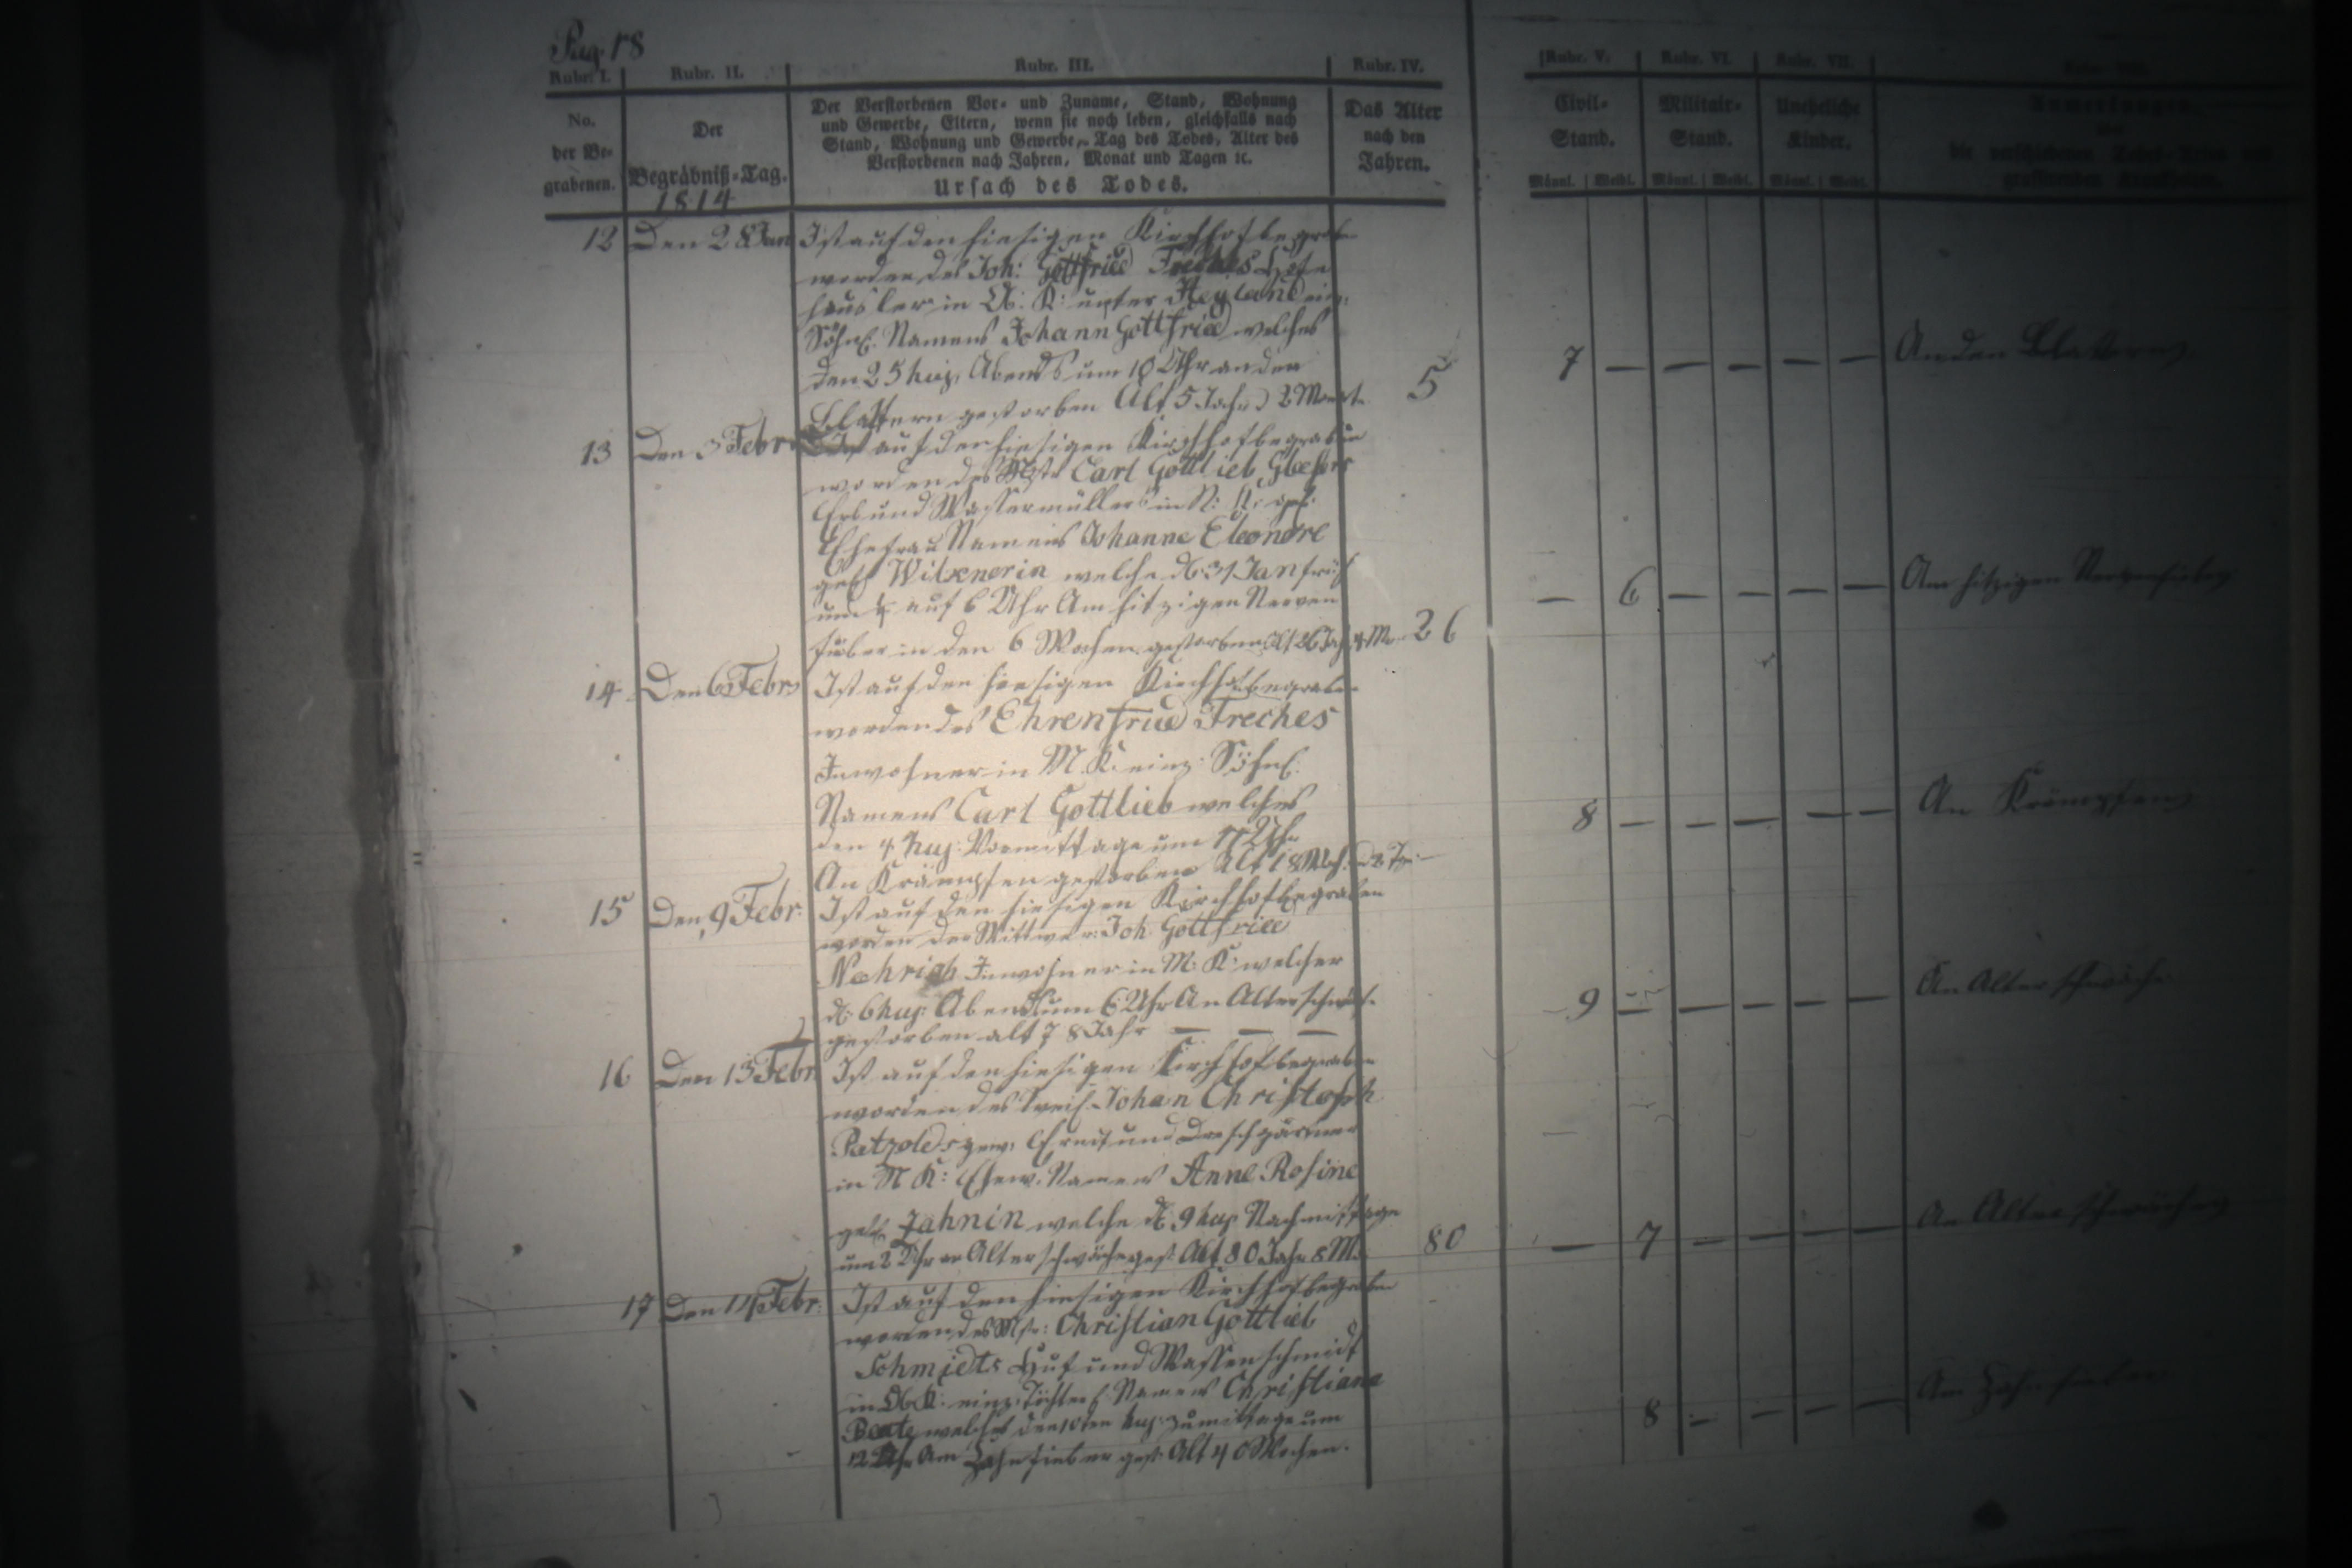 Pag. 18
Rubr. I. Rubr. II. Rubr. III. Rubr. IV. Rubr. V. Rubr. VI. Rubr. VII.
No. der Be-grabenen.
Der Begräbniß-Tag.
1814
Der Verstorbenen Vor- und Zuname, Stand, Wohnung
und Gewerbe, Eltern, wenn sie noch leben, gleichfalls nach
Stand, Wohnung und Gewerbe, Tag des Todes, Alter des
Verstorbenen nach Jahren, Monat und Tagen ꝛc.
Ursach des Todes.
Das Alter
nach den
Jahren.
Civil-Stand.
Militair-Stand.
Uneheliche Kinder.
Anmerkungen
Männl. Weibl. Männl. Weibl. Männl. Weibl.
12 Den 28 Jan Ist auf den hiesigen Kirchhof begraben
worden des Joh: Gottfried Freches
häusler in Ob: K: unter Heyland ein:
Söhnl. Namens Johann Gottfried welches
den 25 huj. Abends um 10 Uhr an den
Blattern gestorben Alt 5 Jahr 2 Monat 5 7 — — — — — An den Blattern
13 Den 3 Febr Ist auf den hiesigen Kirchhof begraben
worden des Mstr Carl Gottlieb
Erb und Wassermüllers in N: K:
Ehefrau Namens Johanne Eleonore
geb Wilznerin welche d: 31 Jan früh
um auf 6 Uhr Am hitzigen Nerven
fieber in den 6 Wochen gestorben Alt 26 Jah 4 Mo 26 — 6 — — — — Am hitzigen Nervenfieber
14 Den 6 Febr Ist auf den hiesigen Kirchhof begraben
worden des Ehrenfried Freches
Inwohner in M. K. einz: Söhnl.
Namens Carl Gottlieb welches
den 4 huj: Vormittage um 11 Uhr
An Krämpfen gestorben Alt 18 Woch. 8 — — — — — An Krämpfen
15 Den 9 Febr: Ist auf den hiesigen Kirchhof begraben
worden der Wittwer: Joh. Gottfried
Nehrich Inwohner in M: K: welcher
d: 6 huj: Abends um 6 Uhr An Alterschwäch.
gestorben alt 78 Jahr — — — 9 — — — — — An Alterschwäche
16 Den 13 Febr Ist auf den hiesigen Kirchhof begraben
worden des Johan Christoph
Petzolds gew: und Dreschgärtner
in N K: Ehew. Namens Anne Rosine
geb Jahnin welche d: 9 huj. Nachmittage
um 2 Uhr an Alterschwäche gest. Alt 80 Jahr 8 M. 80 — 7 — — — — An Alterschwäche
17 Den 14 Febr: Ist auf den hiesigen Kirchhof begraben
worden des Mstr: Christian Gottlieb
Schmidts Huf und Waffenschmidt
in Ob K: einz: Töchterl. Namens Christiana
Beate welches den 10ten huj: zu mittage um
12 Uhr Am Zahnfieber gest. Alt 40 Wochen. 8 — — — — Am Zahnfieber